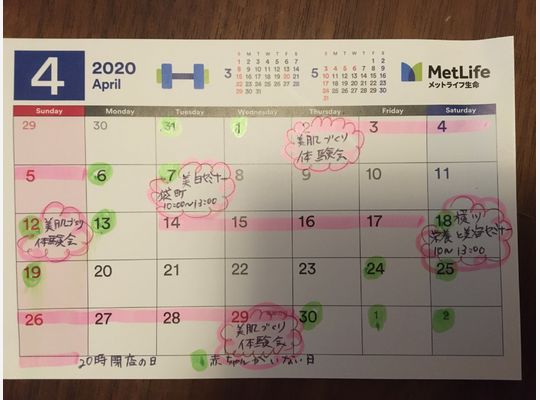 4 2020 April
3
S M T W T F S
1 2 3 4 5 6 7
8 9 10 11 12 13 14
15 16 17 18 19 20 21
22 23 24 25 26 27 28
29 30 31
5
S M T W T F S
1 2
3 4 5 6 7 8 9
10 11 12 13 14 15 16
17 18 19 20 21 22 23
24 25 26 27 28 29 30
31
MetLife
メットライフ生命
Sunday Monday Tuesday Wednesday Thursday Friday Saturday
29 30 31 1 2 3 4
美肌づくり
体験会
5 6 7 8 9 10 11
美白セミナー
袋町
10:00〜13:00
12 13 14 15 16 17 18
美肌づくり
体験会
横川
栄養と美容セミナー
10〜13:00
19 20 21 22 23 24 25
26 27 28 29 30 1 2
美肌づくり
体験会
20時閉店の日
赤ちゃんがいない日